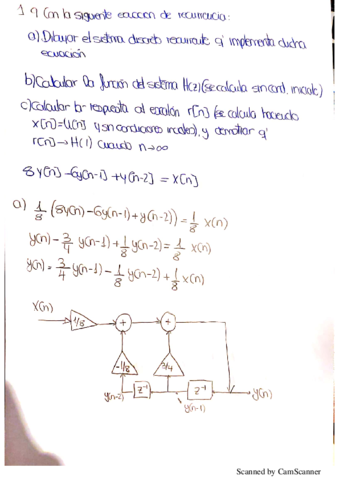 1 9 Con la siguiente ecuación de recurrencia:
a) Dibujar el sistema discreto recurrente q implementa dicha
ecuación
b) Calcular la función del sistema H(z) (se calcula sin cond. iniciale)
c) Calcular la respuesta al escalón r[n] (se calcula haciendo
x[n]=U[n] y sin condiciones iniciales), y demostrar q
r[n] → H(1) cuando n→∞
8y[n] - 6y[n-1] + y[n-2] = x[n]
a) 1/8 (8y(n) - 6y(n-1) + y(n-2)) = 1/8 x(n)
y(n) - 3/4 y(n-1) + 1/8 y(n-2) = 1/8 x(n)
y(n) = 3/4 y(n-1) - 1/8 y(n-2) + 1/8 x(n)
x(n) 1/8 + +
-1/8 3/4
y(n-2) z⁻¹ z⁻¹ y(n)
y(n-1)
Scanned by CamScanner